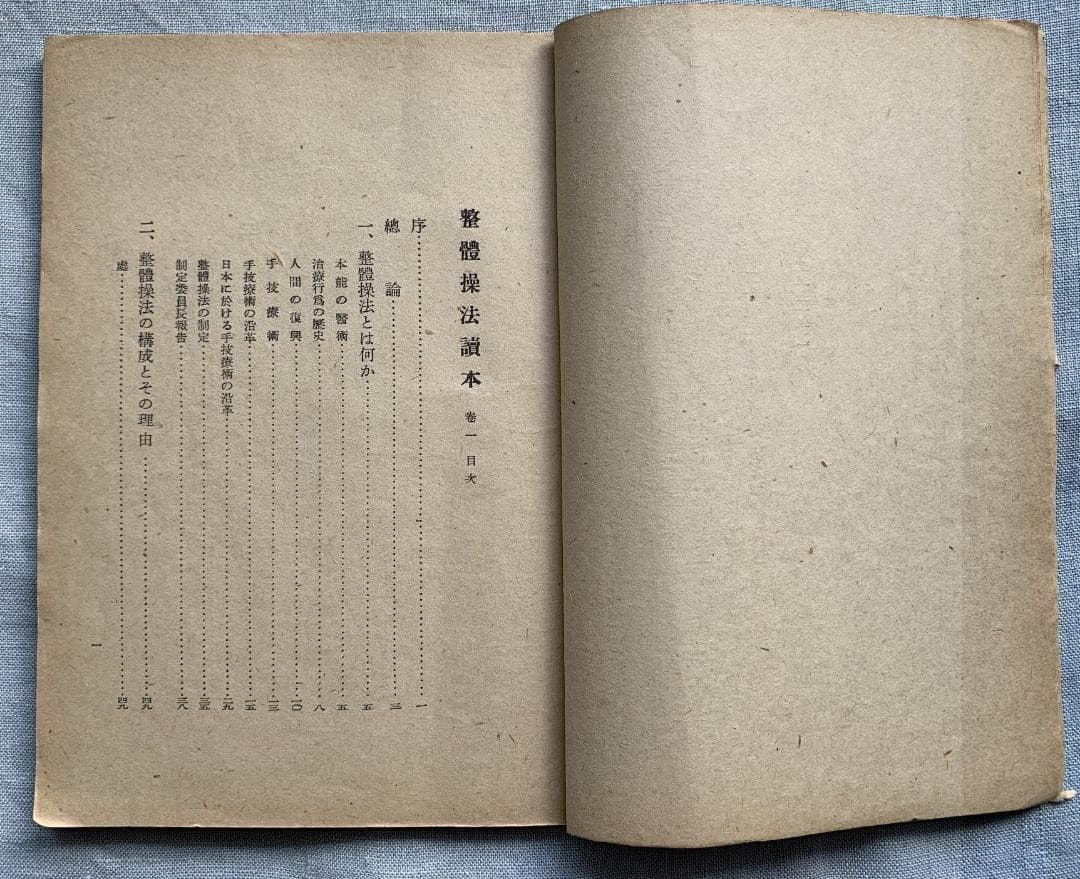 整體操法讀本 卷一 目次
序……一
總論……三
一、整體操法とは何か……五
本能の醫術……五
治療行爲の歷史……八
人間の復興……一〇
手技療術……一三
手技療術の沿革……一五
日本に於ける手技療術の沿革……二九
整體操法の制定……三五
制定委員長報告……三八
二、整體操法の構成とその理由……四九
處……四九
一